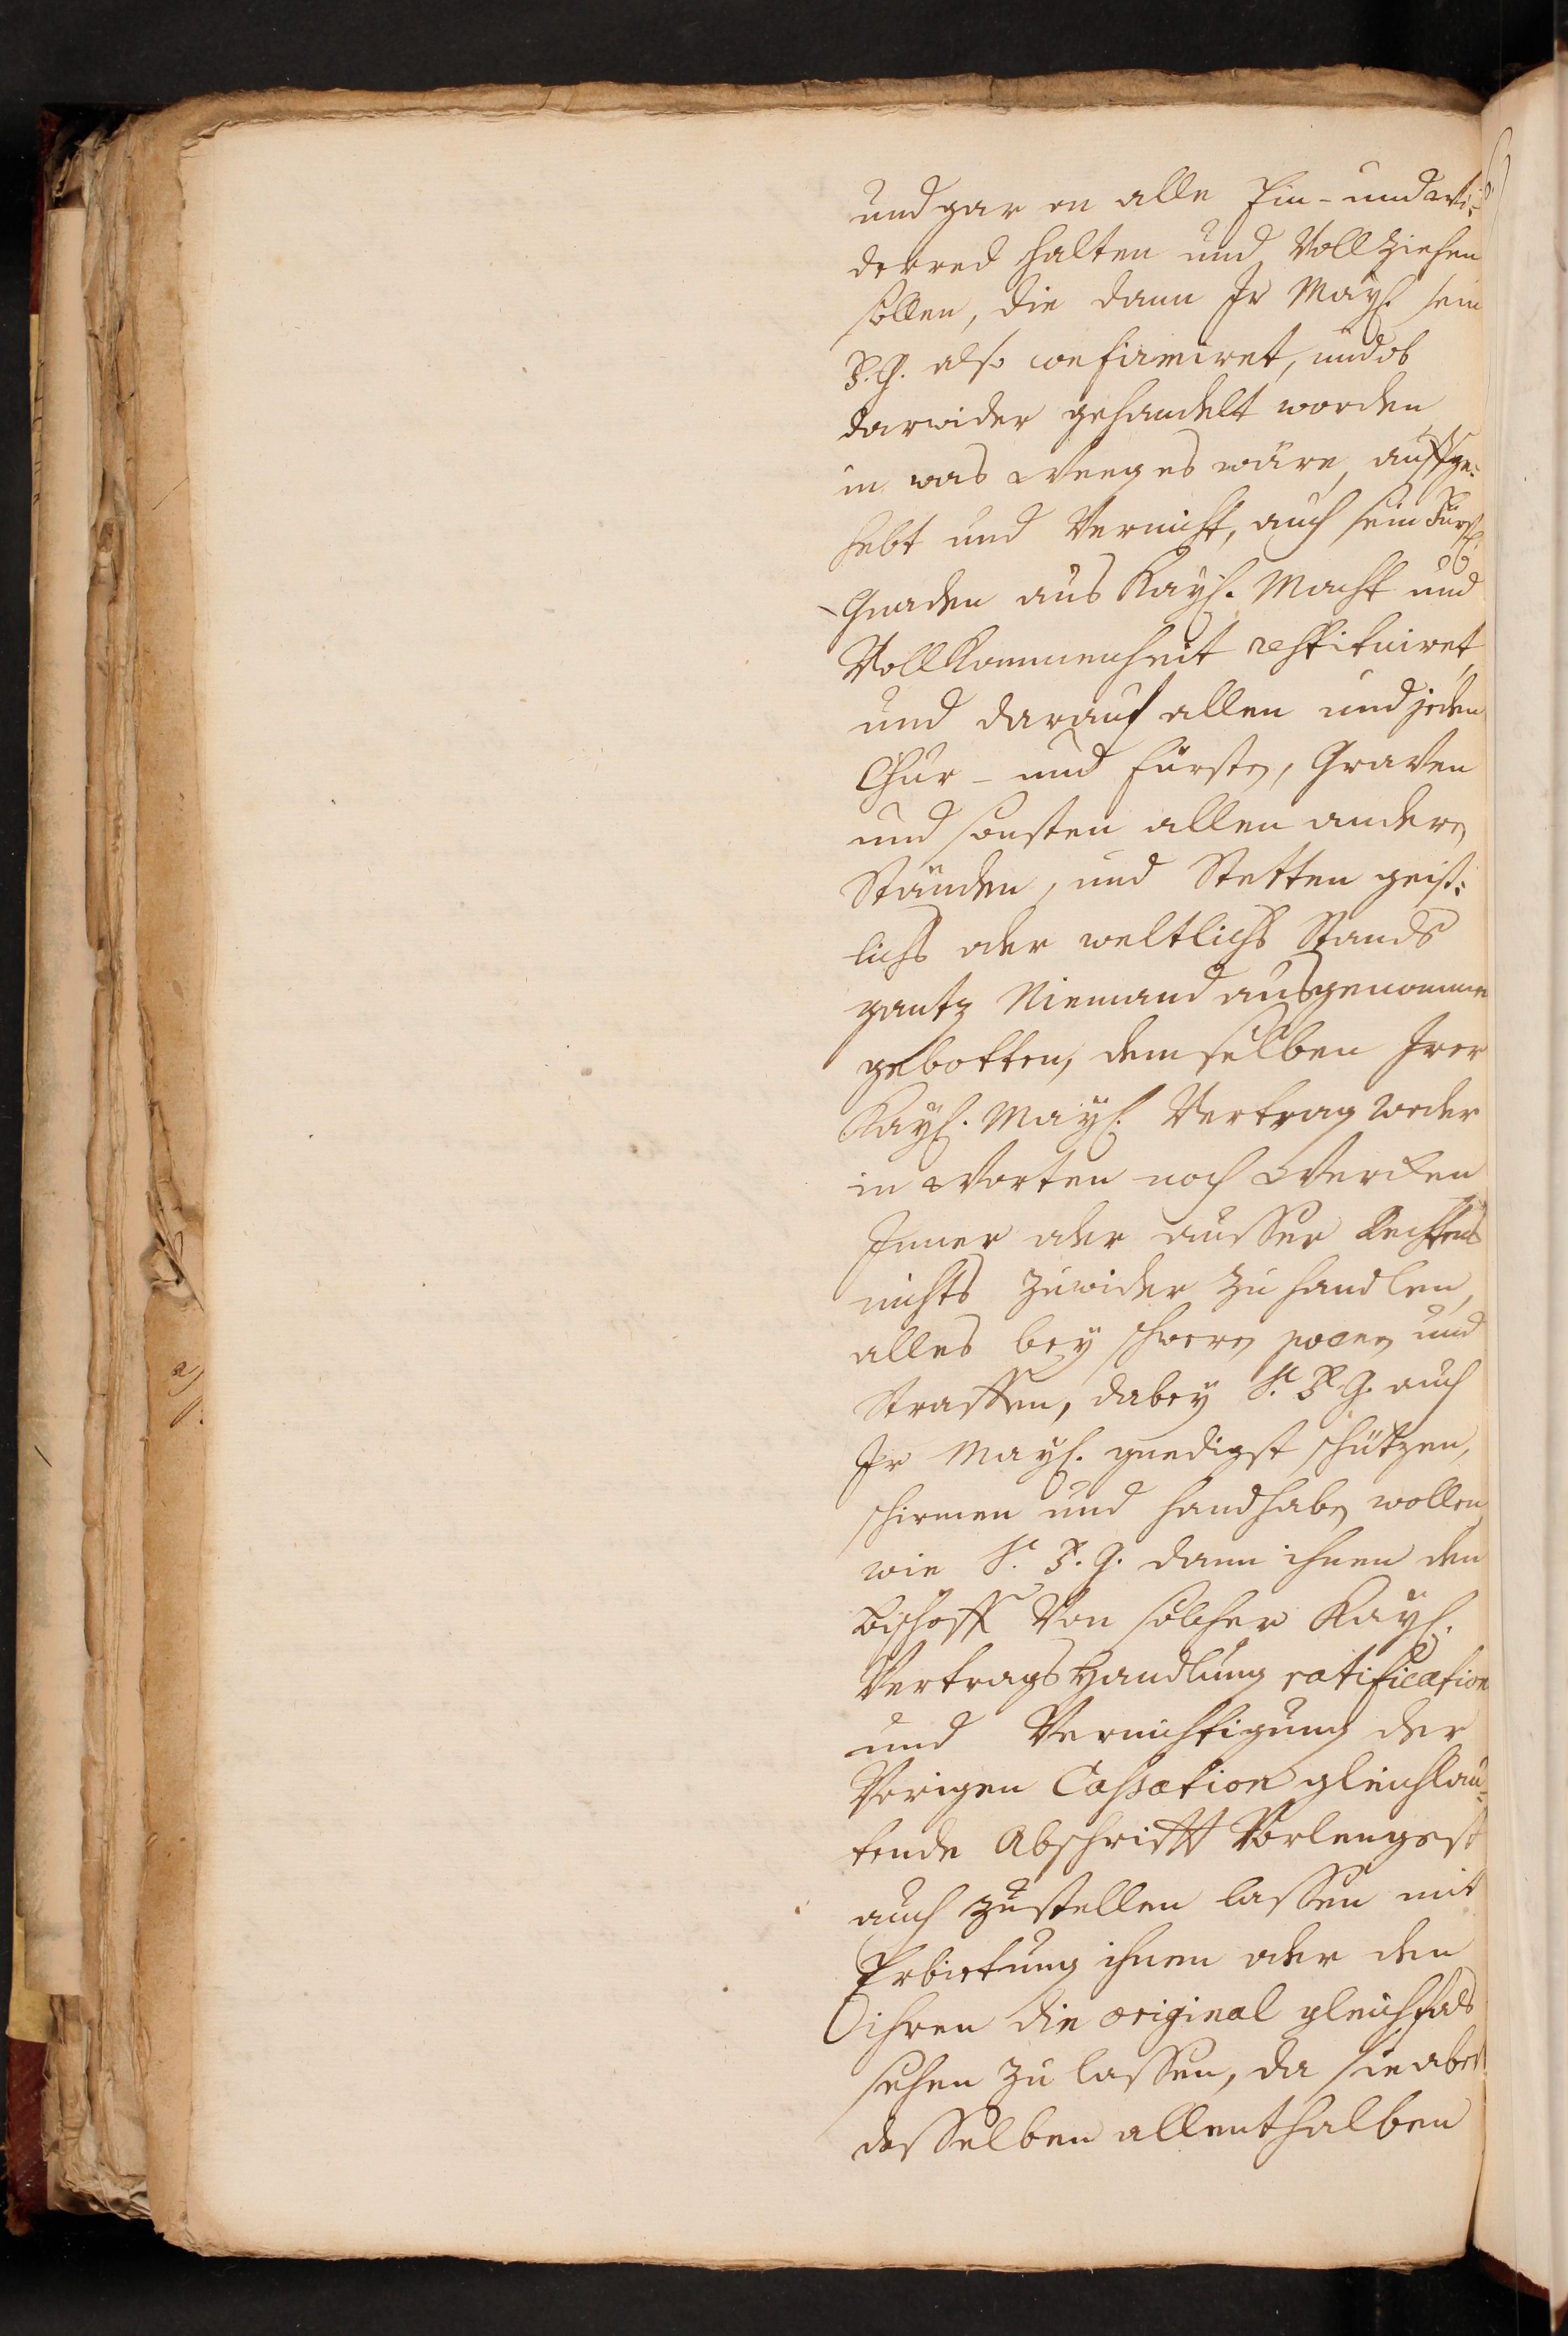 und gar on alle Ein- und wi-
derred halten und Vollziehen
sollen, die dann Jr Mayt. sein
F. G. also confirmiret, und ob
darwider gehandelt worden
in was Weeg es wäre, auffge-
hebt und Vernicht, auch sein Fürstl.
Gnaden aus Kayl. Macht und
Vollkommenheit restituiret,
und darauf allen und jeden
Chur- und Fürsten, Graven
und sonsten allen andern
Ständen, und Stetten geist-
lichs oder weltlichs Stands
gantz Niemand ausgenommen
gebotten, demselben Jrer
Kayl. Mayt. Vertrag weder
in Worten noch Wercken
Inner oder ausser Rechtens
nichts zuwider zu handlen,
alles bey schweren poenen und
Straffen, dabey Sr. F. G. auch
Jr Mayt. gnedigst schützen,
schirmen und handhaben wollen,
wie Sr. F. G. dann ihnen den
Bischoff Von solcher Kayl.
Vertragshandlung ratification
und Vernichtigung der
Vorigen Cassation gleichlau-
tende Abschrifft Vorlengest
auch zustellen lassen mit
Erbietung ihnen oder den
ihren die original gleichfals
sehen zu lassen, da sie aber
desselben allenthalben